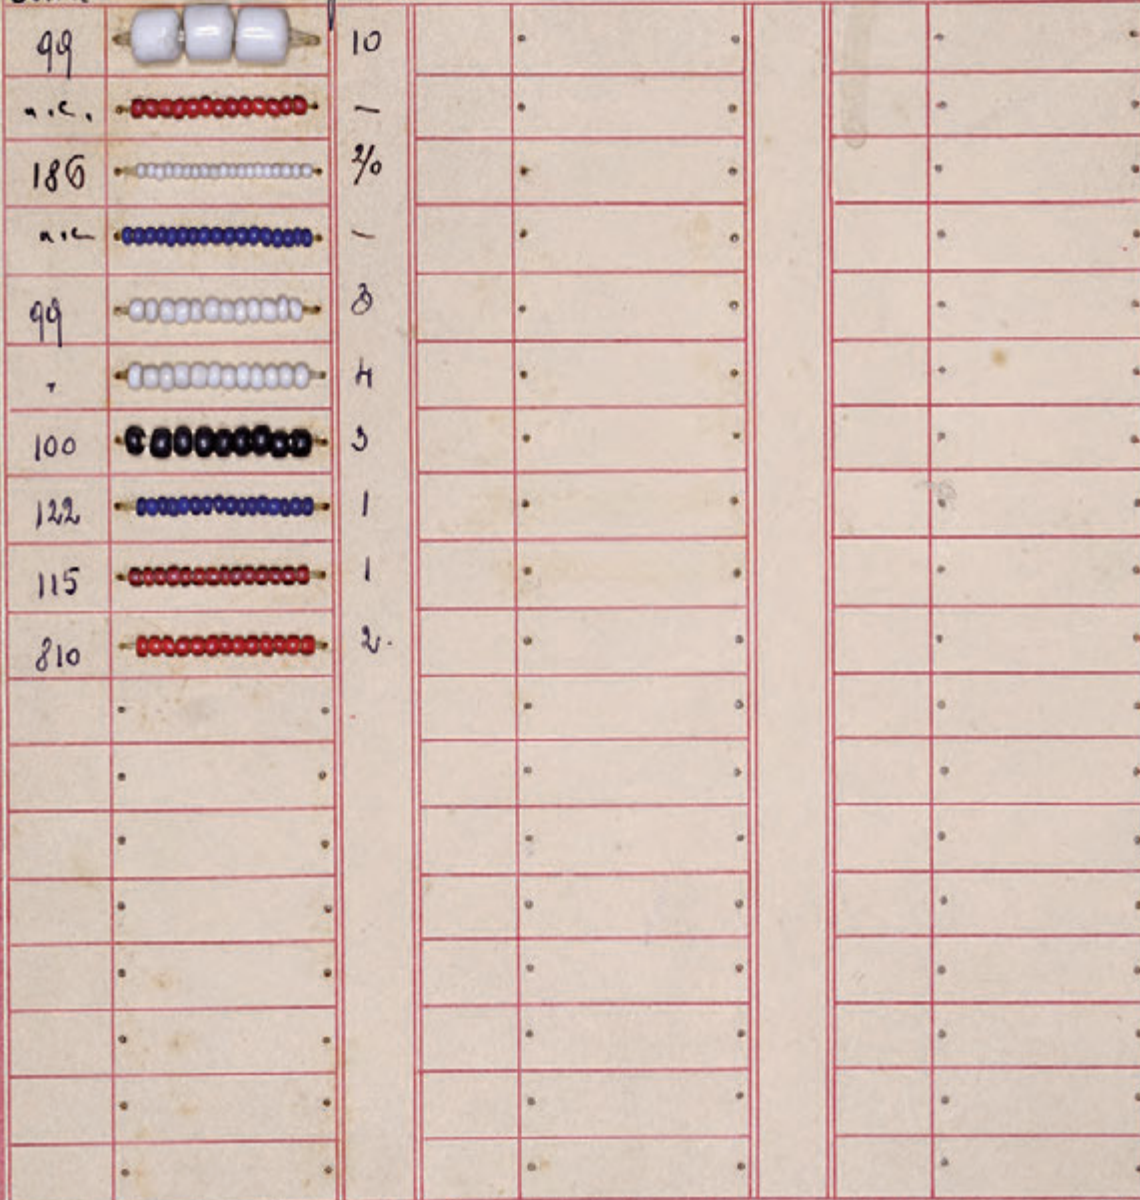 99 10
n.c. —
186 2/0
n.c —
99 3
" 4
100 3
122 1
115 1
810 2.